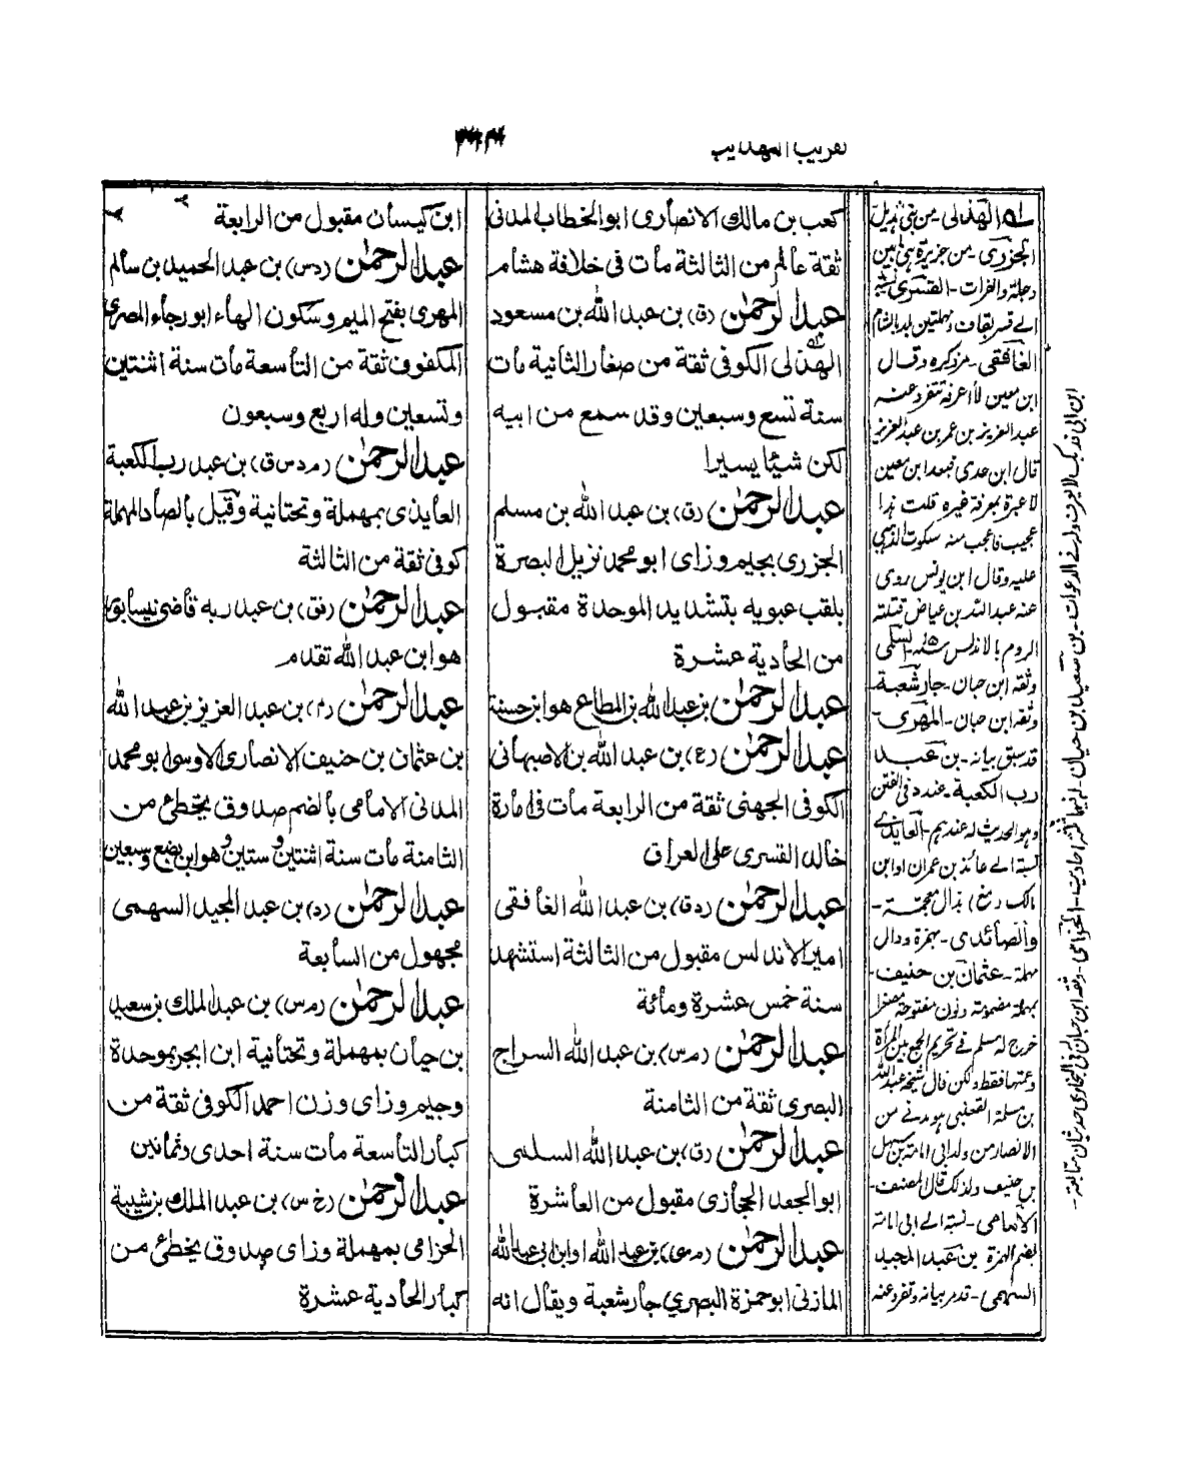 تقريب التهذيب
كعب بن مالك الانصارى ابو الخطاب المدنى
ثقة عالم من الثالثة مات فى خلافة هشام
عبد الرحمٰن (ق) بن عبد الله بن مسعود
الهذلى الكوفى ثقة من صغار الثانية مات
سنة تسع وسبعين وقد سمع من ابيه
لكن شيئا يسيرا
عبد الرحمٰن (ق) بن عبد الله بن مسلم
الجزرى بجيم وزاى ابو محمد نزيل البصرة
يلقب عبويه بتشديد الموحدة مقبول
من الحادية عشرة
عبد الرحمٰن بن عبد الله بن المطاع هو ابن حسنة
عبد الرحمٰن (ع) بن عبد الله بن الاصبهانى
الكوفى الجهنى ثقة من الرابعة مات فى امارة
خالد القسرى على العراق
عبد الرحمٰن (دق) بن عبد الله الغافقى
امير الاندلس مقبول من الثالثة استشهد
سنة خمس عشرة ومائة
عبد الرحمٰن (مس) بن عبد الله السراج
البصرى ثقة من الثامنة
عبد الرحمٰن (ق) بن عبد الله السلمى
ابو الجعد الحجازى مقبول من العاشرة
عبد الرحمٰن بن عبد الله او ابن ابى عبد الله
المازنى ابو حمزة البصري جار شعبة ويقال انه
ابن كيسان مقبول من الرابعة
عبد الرحمٰن (دس) بن عبد الحميد بن سالم
المهرى بفتح الميم وسكون الهاء ابو رجاء المصرى
المكفوف ثقة من التاسعة مات سنة اثنتين
وتسعين وله اربع وسبعون
عبد الرحمٰن (مدسق) بن عبد رب الكعبة
العايذى بمهملة وتحتانية وقيل بالصاد المهملة
كوفى ثقة من الثالثة
عبد الرحمٰن (فق) بن عبد ربه قاضى نيسابور
هو ابن عبد الله تقدم
عبد الرحمٰن (م) بن عبد العزيز بن عبد الله
بن عثمان بن حنيف الانصارى الاوسى ابو محمد
المدنى الامامى بالضم صدوق يخطئ من
الثامنة مات سنة اثنتين وستين وهو ابن بضع وسبعين
عبد الرحمٰن (د) بن عبد المجيد السهمى
مجهول من السابعة
عبد الرحمٰن (مس) بن عبد الملك بن سعيد
بن حيان بمهملة وتحتانية ابن ابجر بموحدة
وجيم وزاى وزن احمد الكوفى ثقة من
كبار التاسعة مات سنة احدى وثمانين
عبد الرحمٰن (خ س) بن عبد الملك بن شيبة
الحزامى بمهملة وزاى صدوق يخطئ من
كبار الحادية عشرة
الهذلى - من بنى هذيل
الجزرى - من جزيرة هى بين
دجلة والفرات - القسرى نسبة
الى قسر بقاف ومهملتين بلد بالشام
الغافقى - مر ذكره وقال
ابن معين لا اعرفه تفرد عنه
عبد العزيز بن عمر بن عبد العزيز
قال ابن عدى فبعد ابن معين
لا عبرة بمعرفة غيره قلت هذا
عجيب فاعجب منه سكوت الذهبى
عليه وقال ابن يونس روى
عنه عبد الله بن عياض قتلته
الروم بالاندلس السلمى
وثقه ابن حبان - جار شعبة
وثقه ابن حبان - المهرى -
قد سبق بيانه - بن عبد
رب الكعبة - عنده فى الفتن
وهو الحديث له عندهم - العايذى
نسبة الى عائذ بن عمران او ابن
مالك بذال معجمة -
والصائدى - بهمزة ودال
مهملة - عثمان بن حنيف -
بمهملة مضمومة ونون مفتوحة مصغرا
خرج له مسلم فى تحريم الجمع بين المرأة
وعمتها فقط ولكن قال شيخه عبد الله
بن مسلمة القعنبى هو مدنى من
الانصار من ولد ابى امامة بن سهل
بن حنيف ولذلك قال المصنف -
الامامى - نسبة الى ابى امامة
بضم الهمزة بن عبد المجيد
السهمى - قد مر بيانه وتفرد عنه